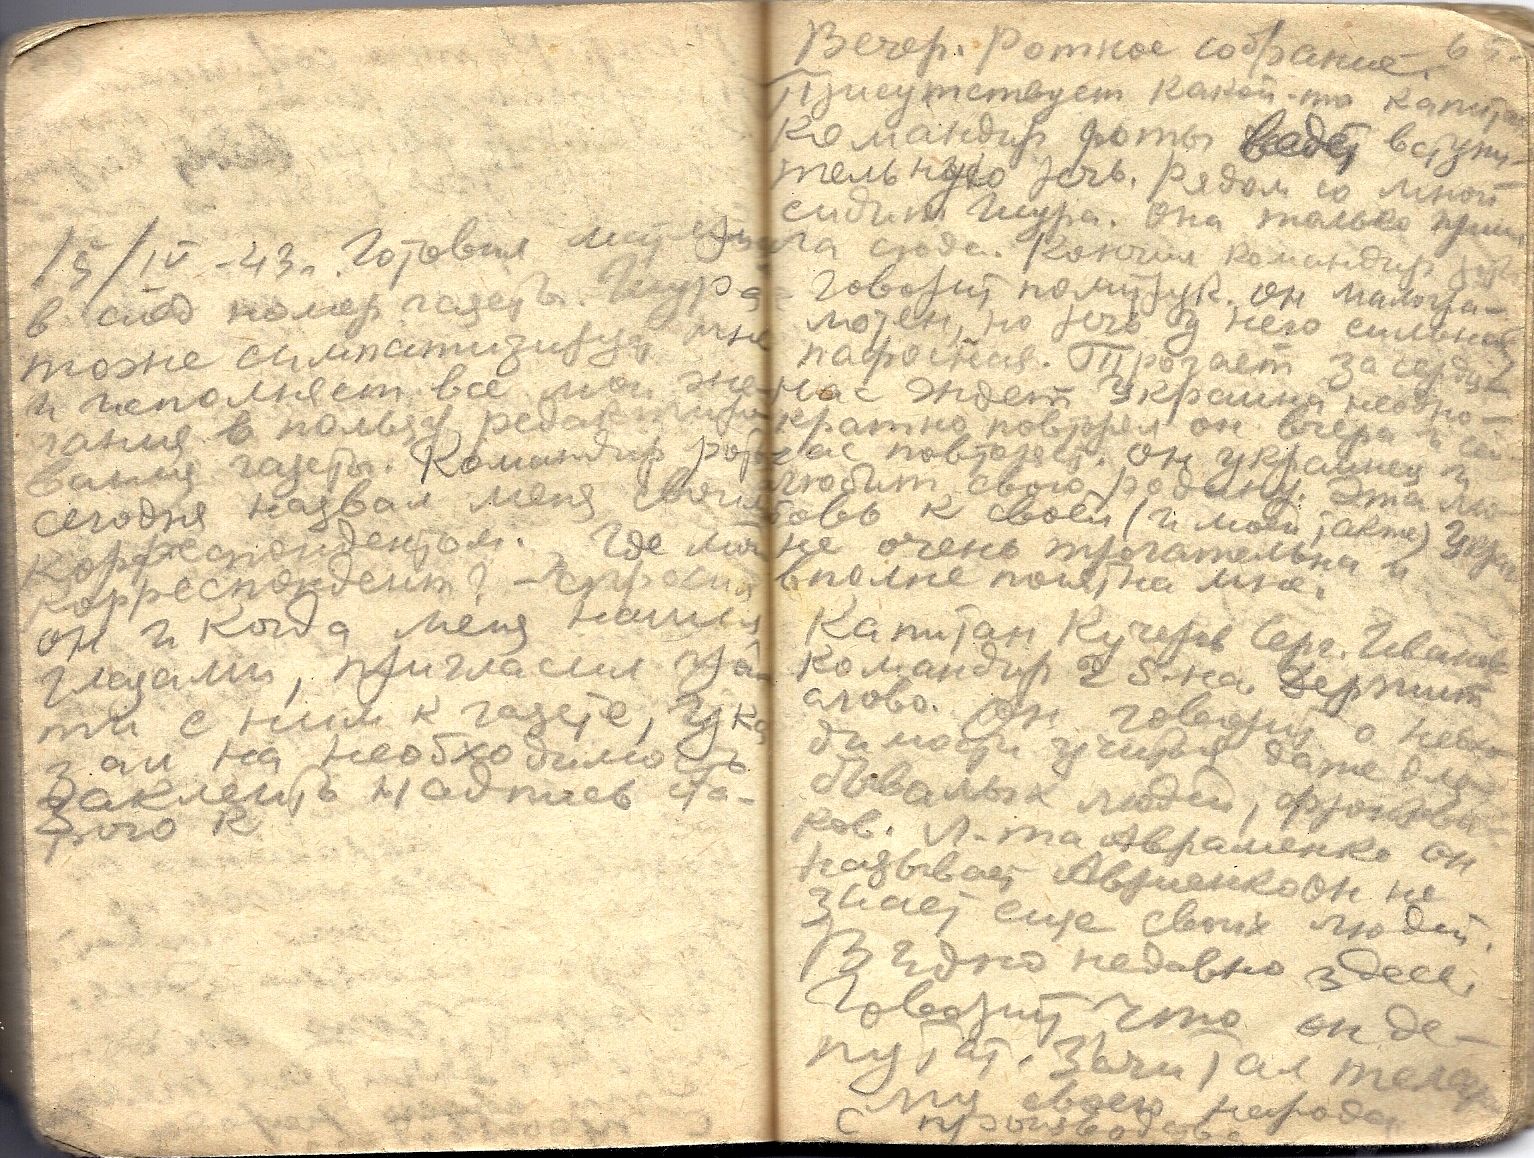 15/IV-43г. Готовил мат-
в след номер газеты. Шура
тоже симпатизирует мне
и исполняет все мои же-
лания в пользу редактиро-
вания газеты. Командир роты
сегодня назвал меня своим
корреспондентом. Где мой
корреспондент? – спросил
он и когда меня нашли
глазами, пригласил
ти с ним к газете, ука-
зал на необходимость
заклеить надпись
К
65.
Вечер. Ротное собрание.
Присутствует какой-то капитан
Командир роты ведёт вступи-
тельную речь. Рядом со мной
сидит Шура. Она только приш
ла сюда. Кончил командир роты
Говорит помпрук. Он малогра-
мотен, но речь у него сильная,
пафосная. Трогает за сердце
Нас ждет Украина неодно-
кратно повторял он вчера и сей-
час повторяет. Он украинец и
любит свою родину. Эта лю-
бовь к своей (и моей также) Украи
не очень трогательна и
вполне понятна мне.
Капитан Кучеров Серг. Иванов
Командир 2 б-на. Держит
слово. Он говорит о необхо
димости учиться даже для
бывалых людей, фронтови-
ков. Л-та Авраменко он
называет Авриенко он не
знает еще своих людей.
Видно недавно здесь.
Говорит что он де-
путат. Зачитал телегр
му своего народа
с производства